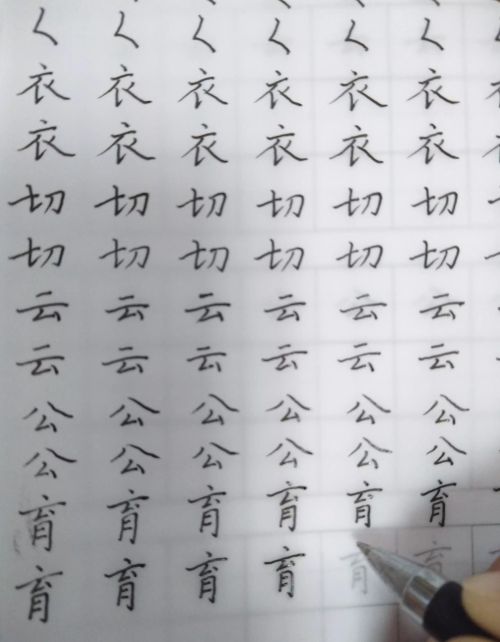 く く く く く く
衣 衣 衣 衣 衣 衣
衣 衣 衣 衣 衣 衣
切 切 切 切 切 切
切 切 切 切 切 切
云 云 云 云 云 云
云 云 云 云 云 云
公 公 公 公 公 公
公 公 公 公 公 公
育 育 育 育 育 育
育 育 育 育 育 育